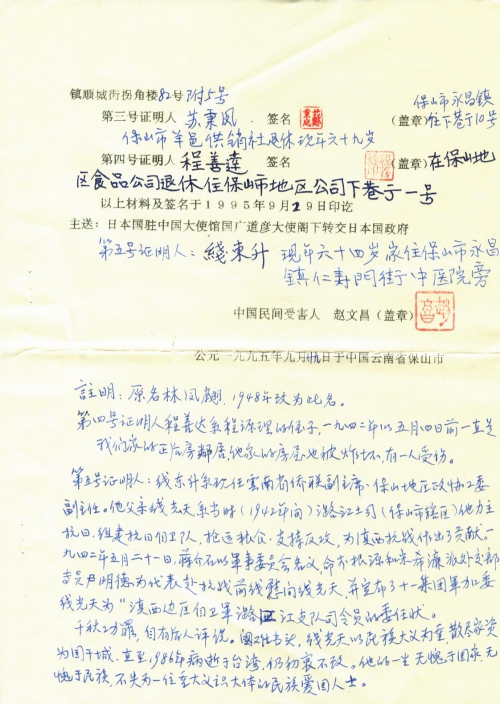 镇顺城街拐角楼82号附5号
第三号证明人 苏秉风 签名 (盖章)
保山市永昌镇
住下巷子10号
保山市羊邑供销社退休现年六十九岁
第四号证明人 程善達 签名 (盖章)在保山地
区食品公司退休住保山市地区公司下巷子一号
以上材料及签名于1995年9月29日印讫
主送：日本国驻中国大使馆国广道彦大使阁下转交日本国政府
第五号证明人：线東升 现年六十四岁家住保山市永昌
鎮仁寿門街于中医院旁
中国民间受害人 赵文昌(盖章)
公元一九九五年九月 日于中国云南省保山市
註明：原名林凤翽，1948年改为此名。
第四号证明人程善达系程源理的侄子，一九四二年以五月四日前一直是
我们家的正后房鄰居，他家的房屋也被炸坏，有一人受伤。
第五号证明人：线东升系现任雲南省侨联副主席、保山地区政协工委
副主任。他父亲线光天系当时（1942年间）潞江土司（保山市辖区）他力主
抗日，组建抗日自卫队，抢运粮食、支援反攻，为滇西抗战作出了贡献。
一九四二年五月二十一日，蒋介石以军事委员会名义，命 根源和宋希濂派外交部
专员尹明德为代表赴抗战前线慰问线光天，并宣布了十一集团军加委
线光天为“滇西边区自卫军潞江支队司令员的委任状。
千秋功罪，自有后人评说。 线光天以民族大义为重散尽家资
为国干城，直至1986年病逝于台湾，仍初衷不改。他的一生无愧于国家，无
愧于民族，不失为一位重大义识大体的民族爱国人士。